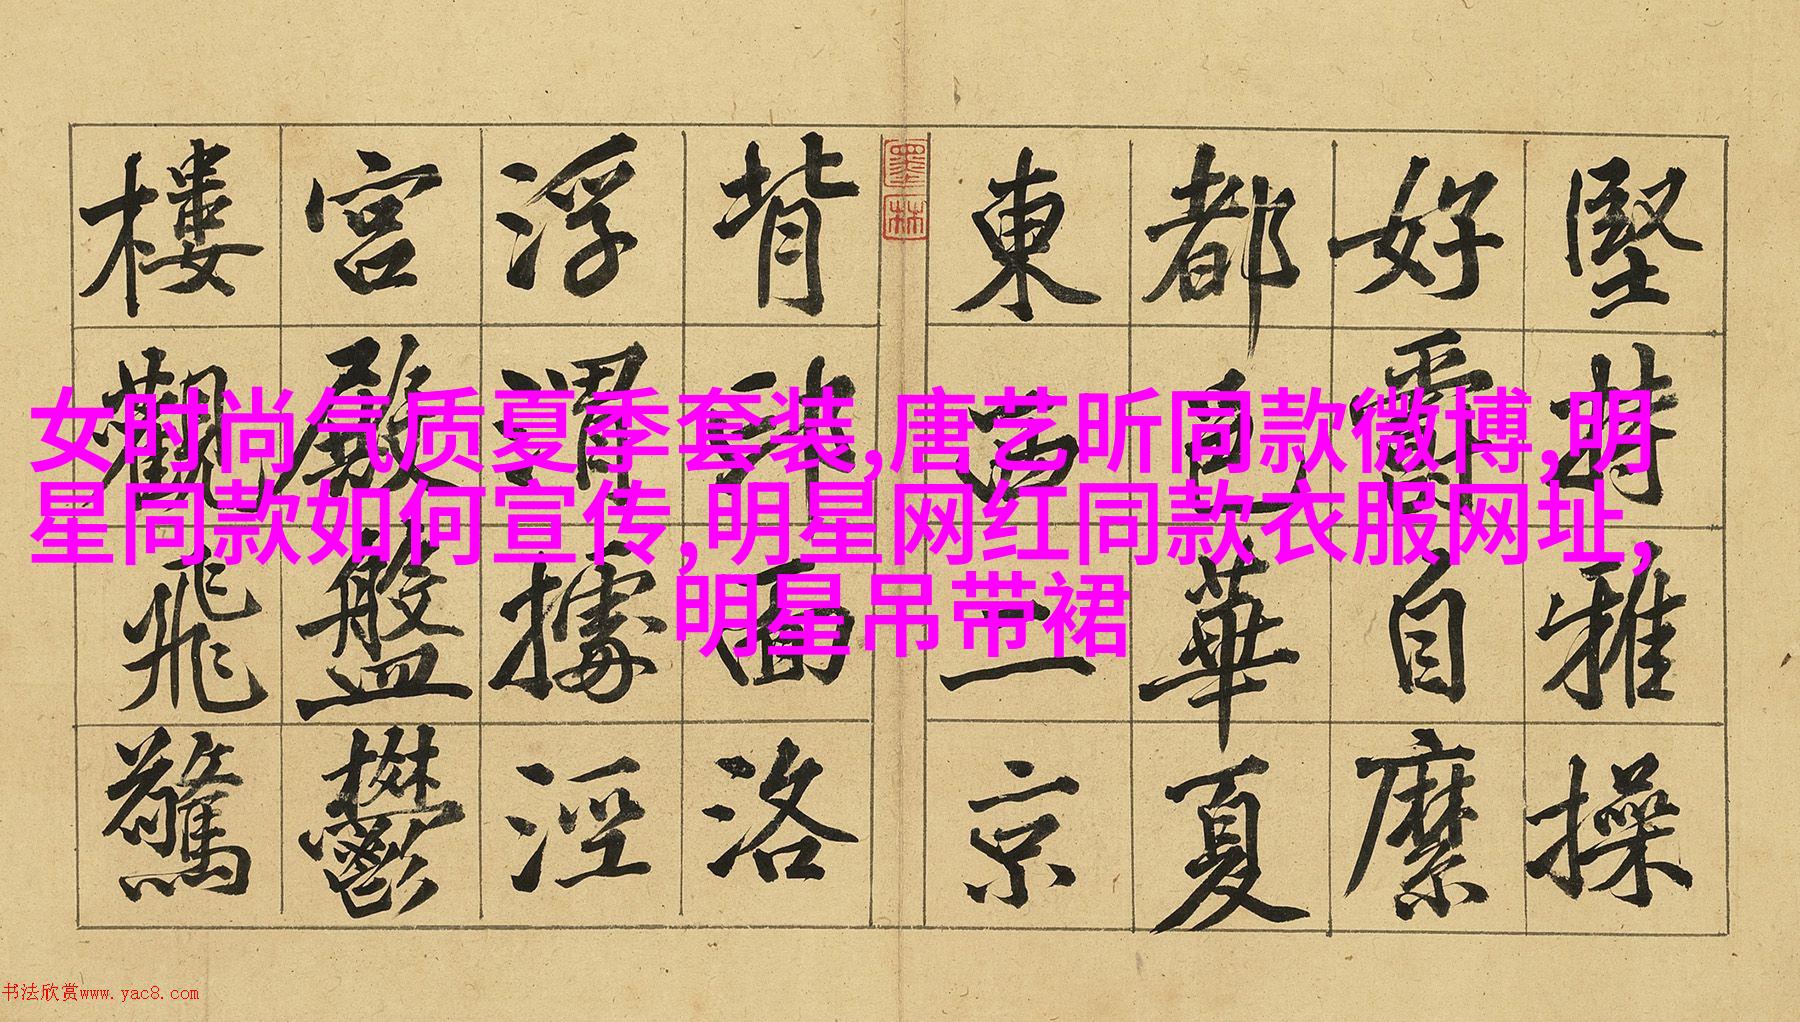 堅持雅操
好爵自縻
都邑華夏
東西二京
墨林
背邙面洛
浮渭據涇
宮殿盤鬱
樓觀飛驚
女时尚气质夏季套装,唐艺昕同款微博,明
星同款如何宣传,明星网红同款衣服网址,
明星吊带裙
书法欣赏www.yac8.com